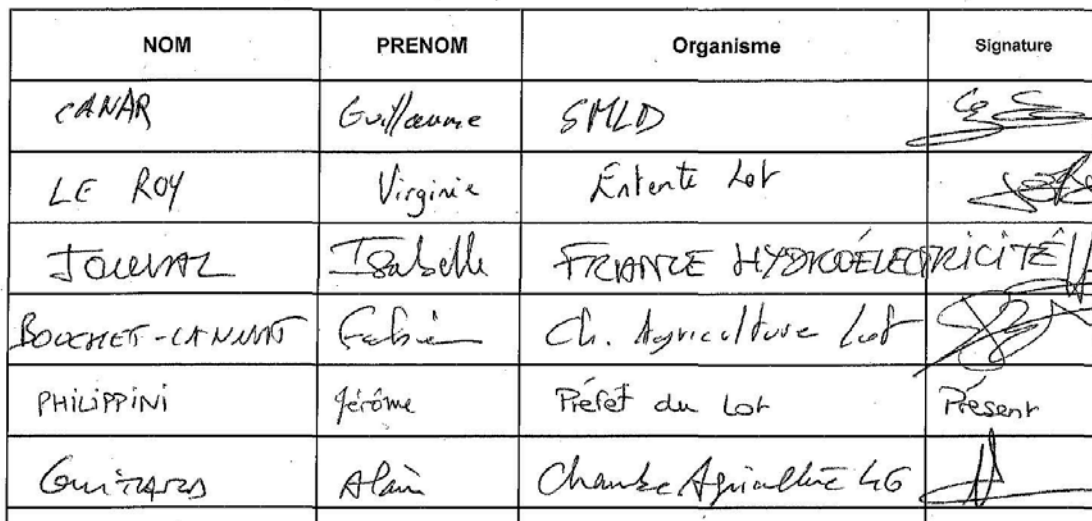 NOM PRENOM Organisme Signature
CANAR Guillaume SMLD
LE ROY Virginie Entente Lot
JOURNAL Isabelle FRANCE HYDROÉLECTRICITÉ
BOUCHET-LANNAT Fabien Ch. Agriculture Lot
PHILIPPINI Jérôme Préfet du Lot Présent
GUITARD Alain Chambre Agriculture 46